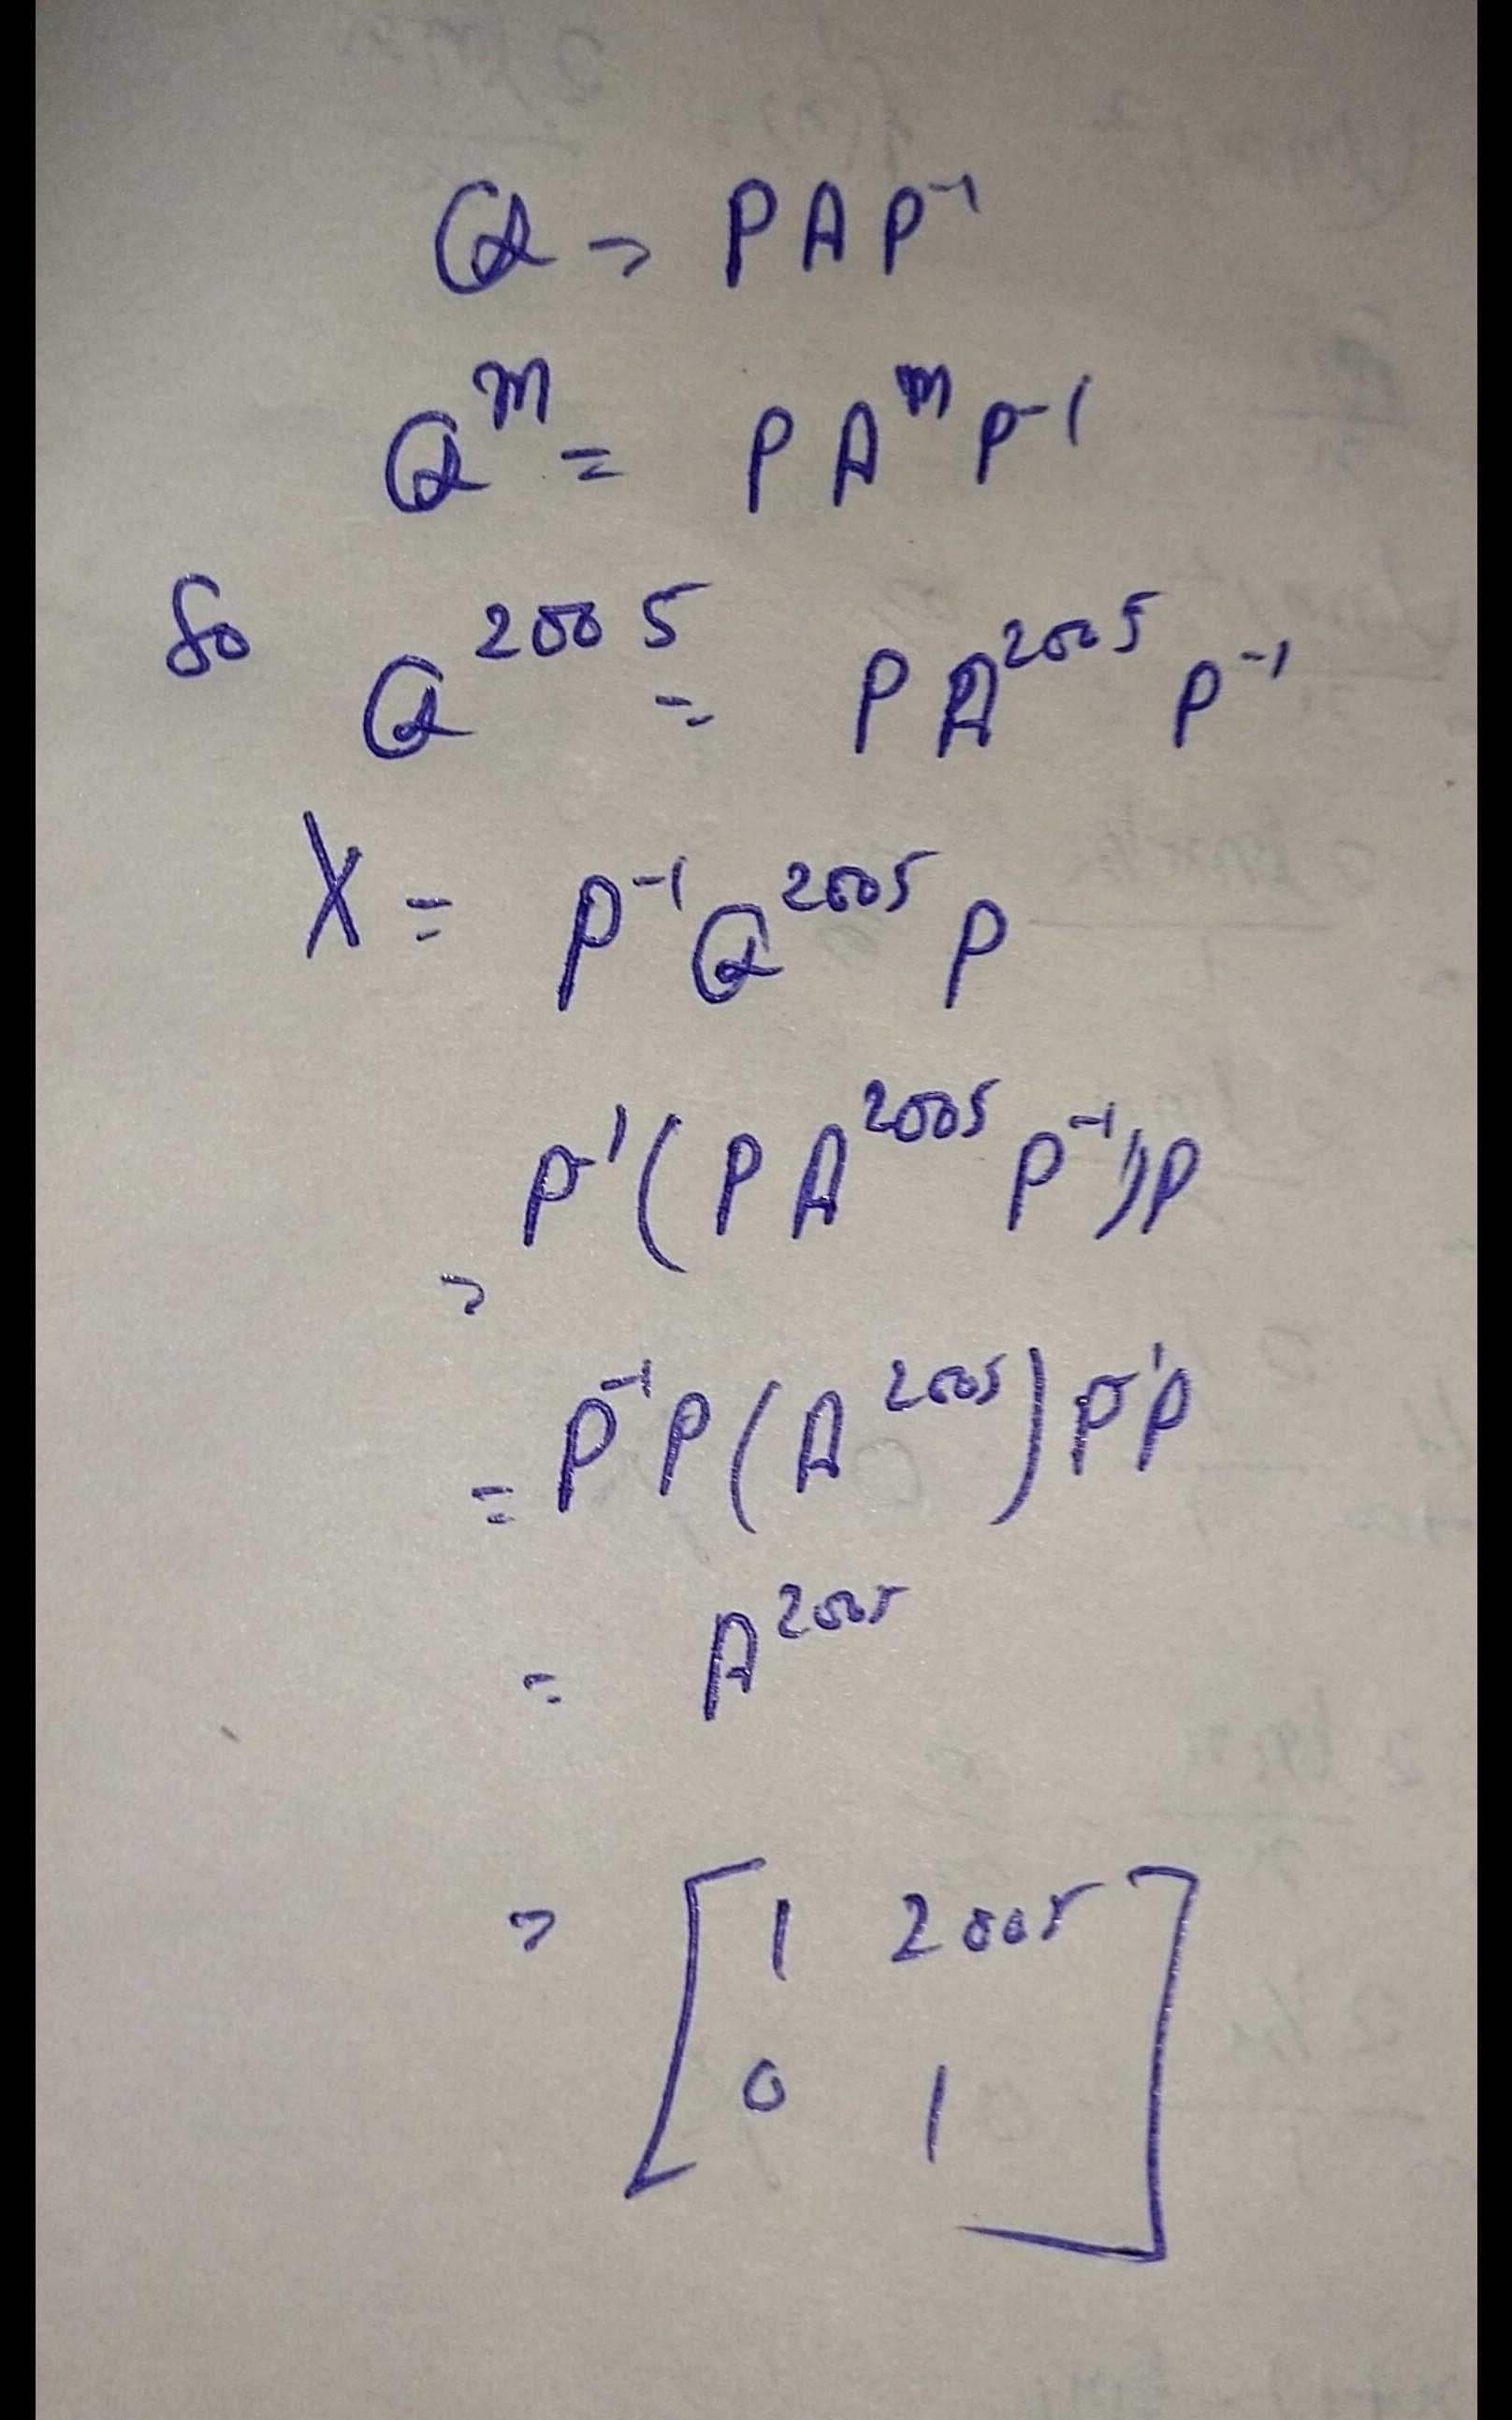 Q = PAP⁻¹
Qᵐ = PAᵐP⁻¹
So Q²⁰⁰⁵ = PA²⁰⁰⁵P⁻¹
X = P⁻¹Q²⁰⁰⁵P
= P⁻¹(PA²⁰⁰⁵P⁻¹)P
= P⁻¹P(A²⁰⁰⁵)P⁻¹P
= A²⁰⁰⁵
= [1 2005
0 1]